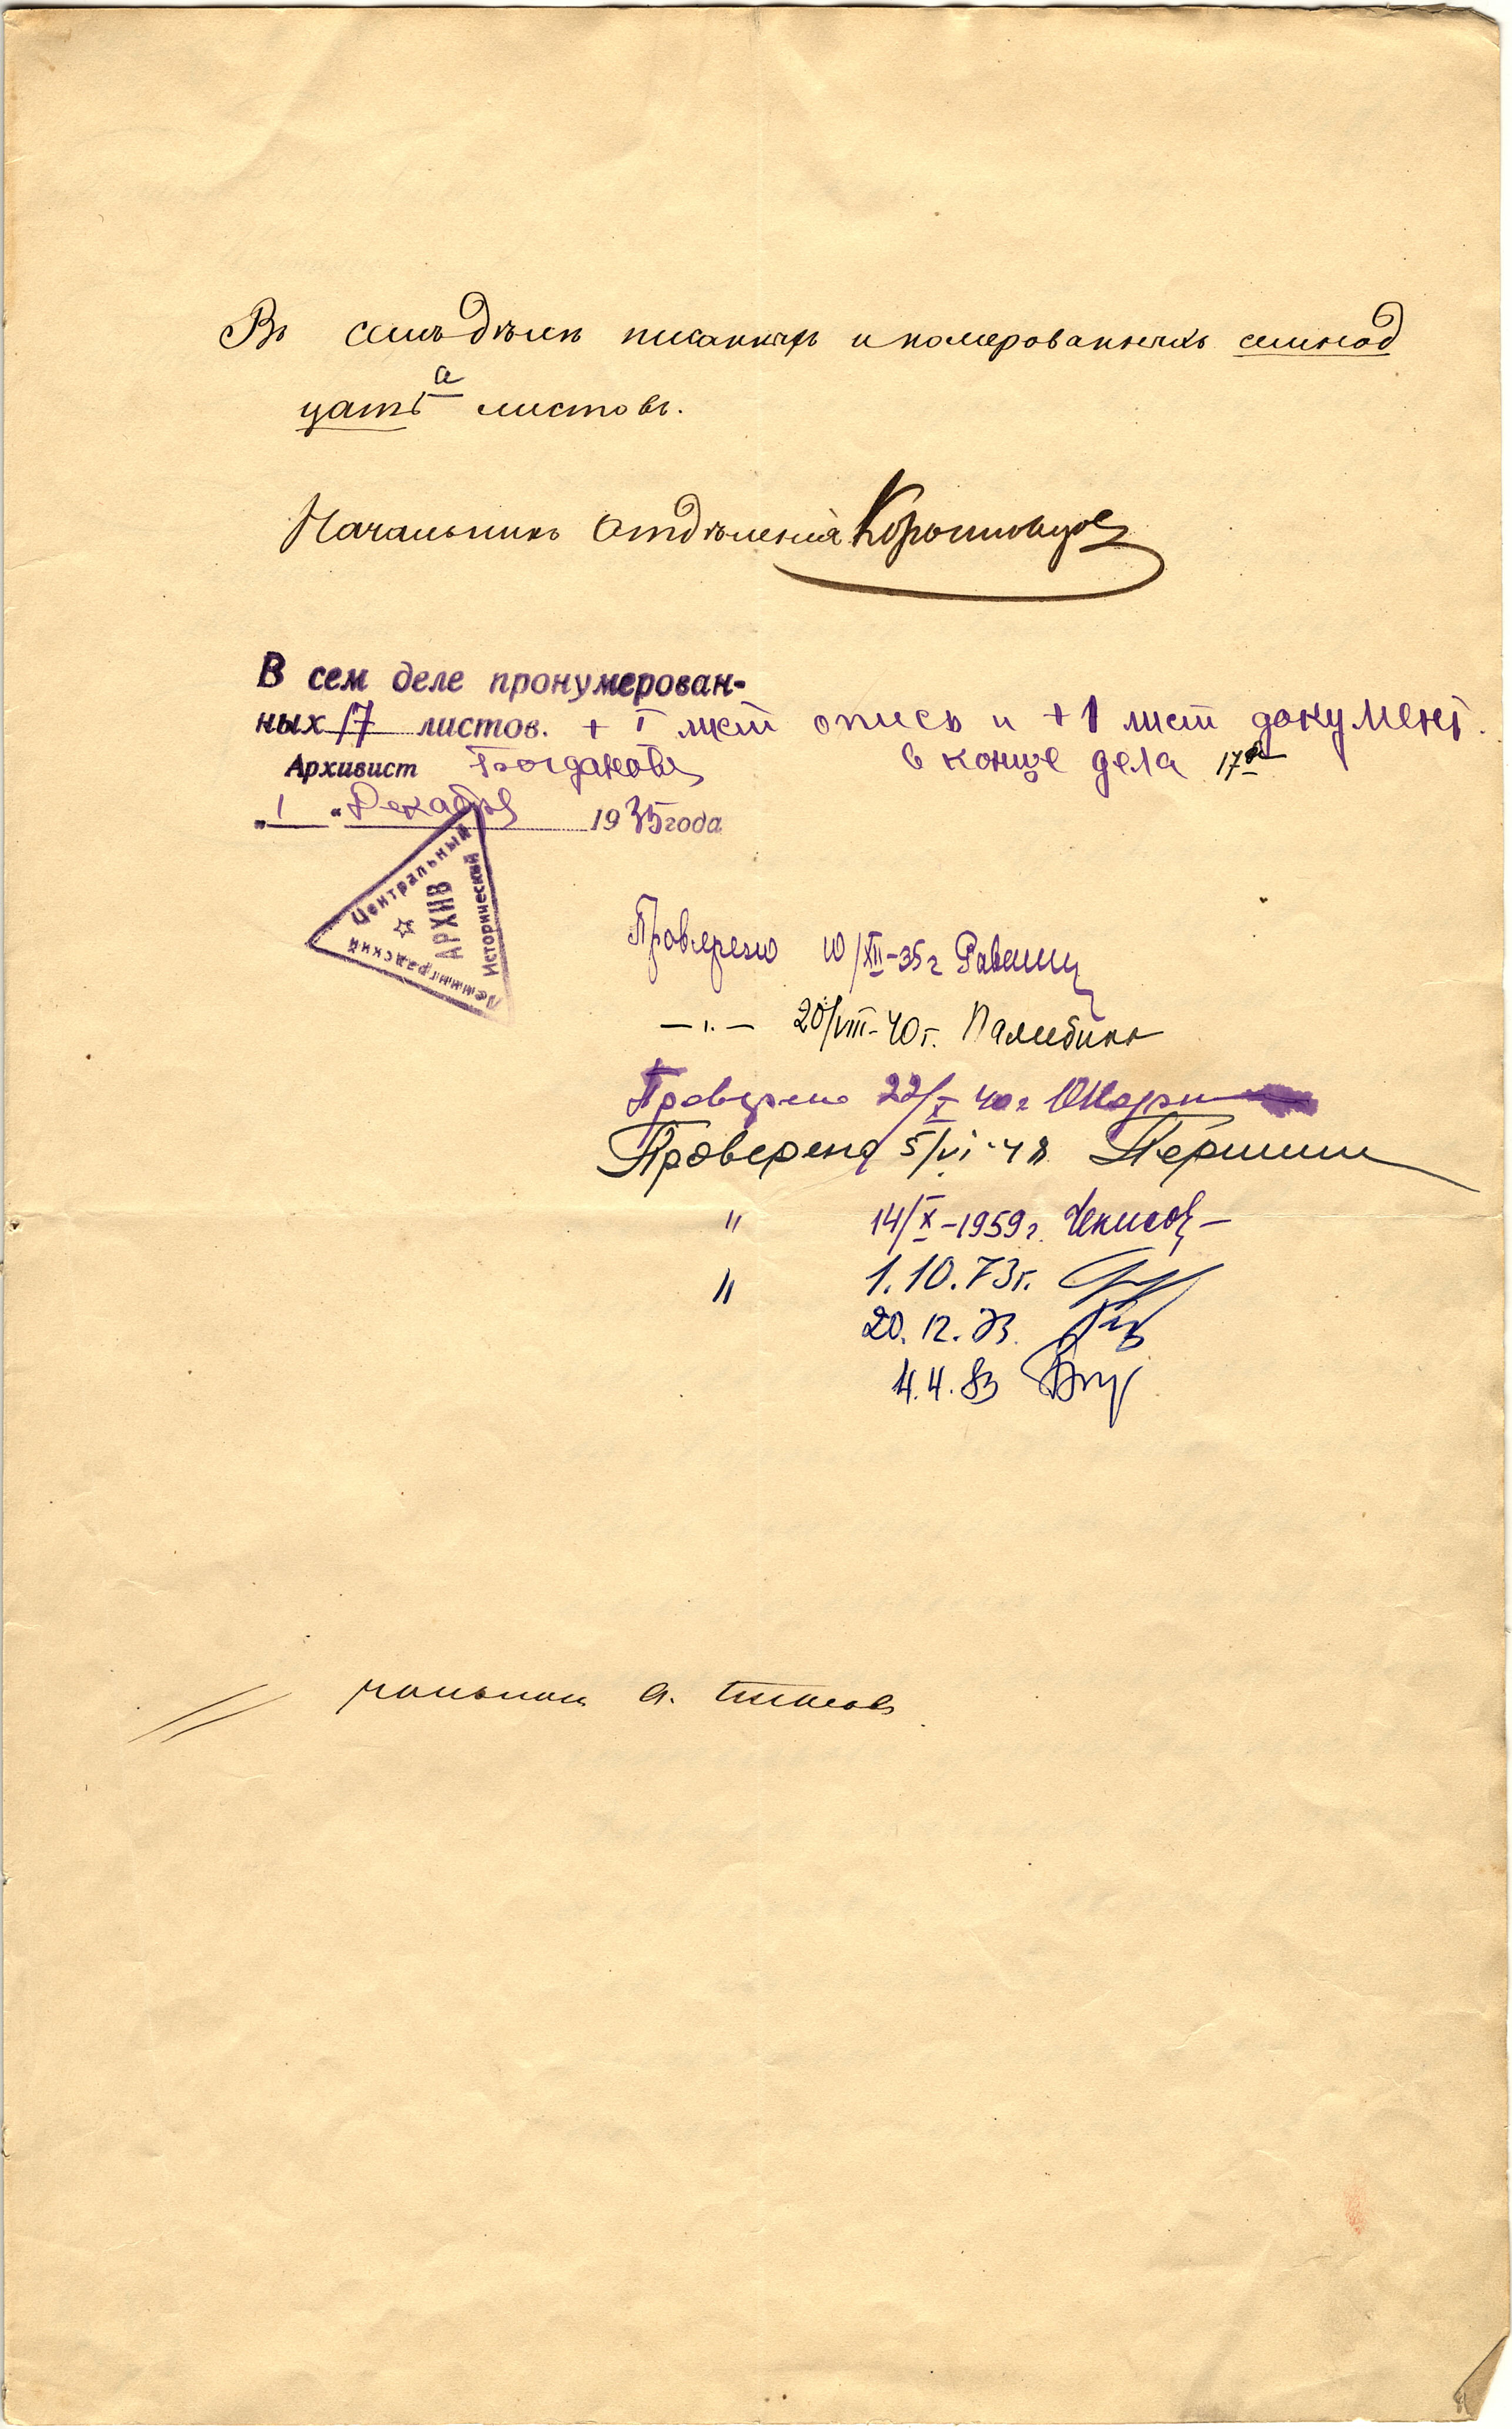 Въ семъ дѣлѣ писанныхъ и номерованныхъ семнад
цать а листовъ.
Начальникъ Отдѣленія Коростовцов
В сем деле пронумерован-
ных 17 листов. + I лист опись и + 1 лист документ.
в конце дела 17а
Архивист Богданова
„1“ Декабря 1935 года
Ленинградский Центральный Исторический АРХИВ
Проверено 10/XII-35г
—"— 20/VIII-40г. Палибина
Проверено 22/X 40г
Проверено 5/VI-4 Першин
" 14/X-1959г.
" 1.10.73г.
20.12.73.
4.4.83